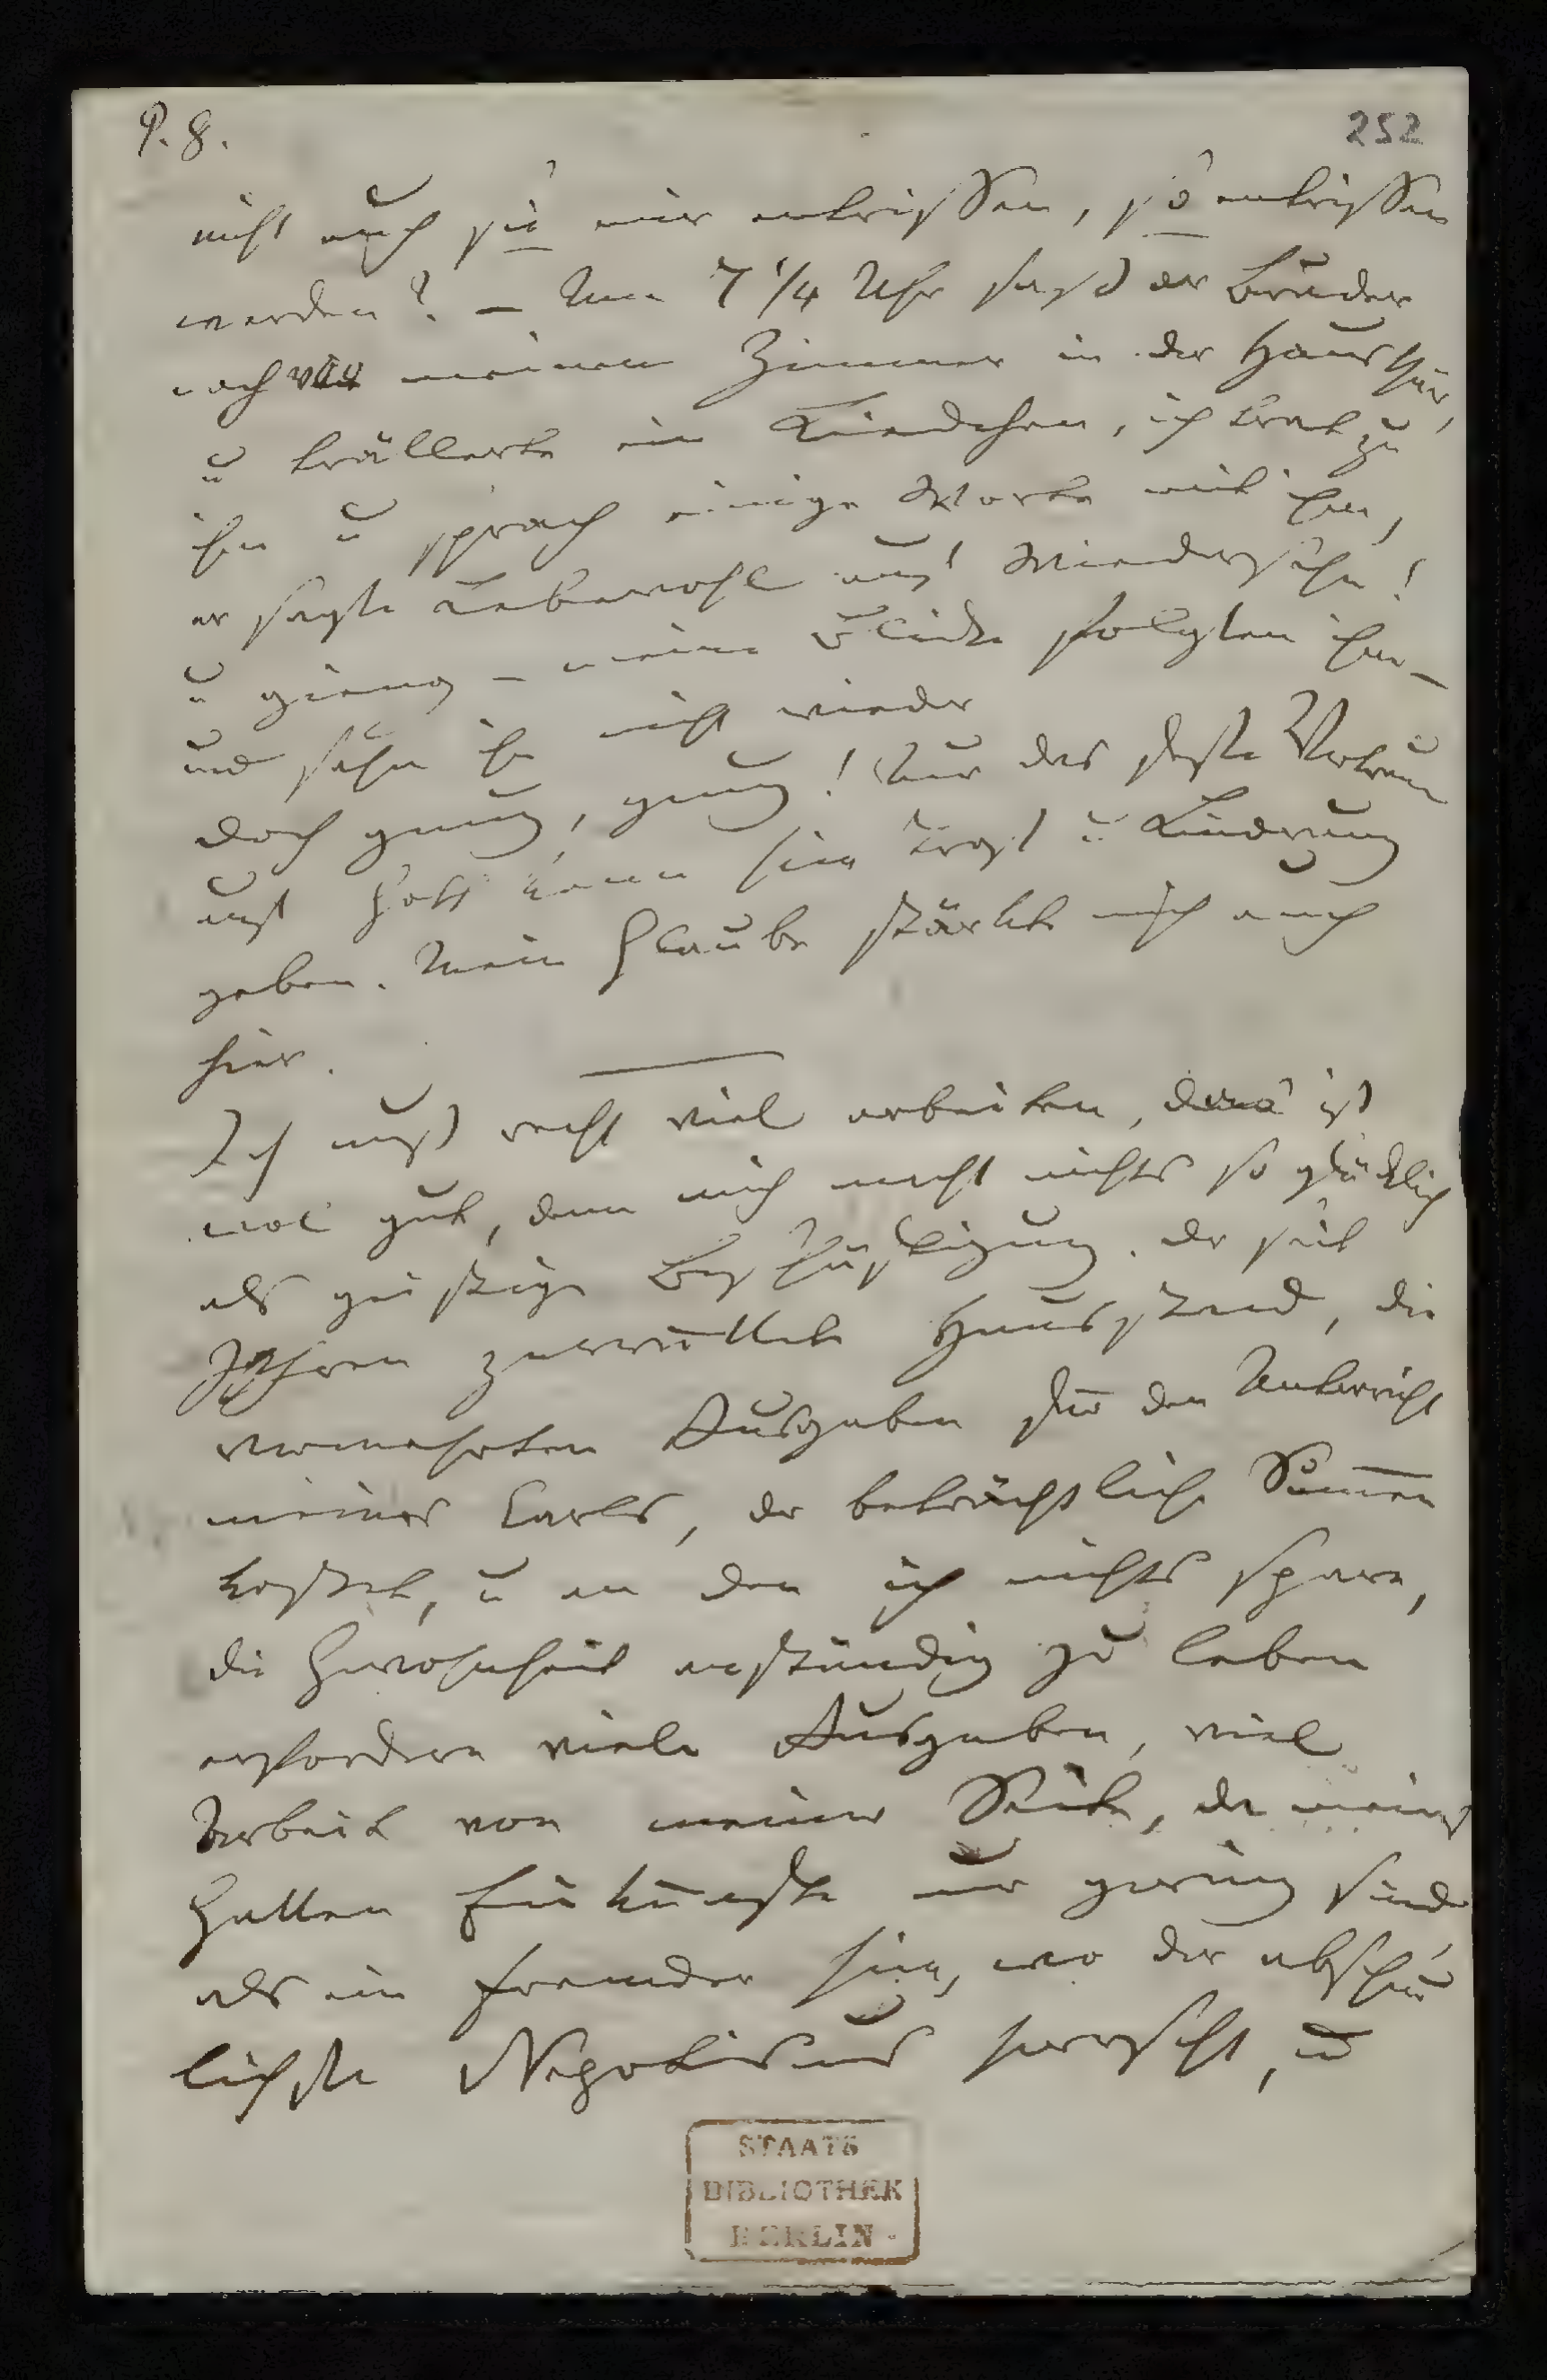 P. 8.
252
nicht auch sie mir entrissen, so entrissen
werden? – Um 7 1/4 Uhr saß der Bruder
noch vor meinem Zimmer in der Hausthür,
u trällerte ein Liedchen, ich trat zu
ihm u sprach einige Worte mit ihm,
er sagte Lebewohl auf Wiedersehn!
u gieng – meine Blicke folgten ihm –
und sahn ihn nicht wieder
doch genug, genug! Nur das feste Vertraun
auf Gott kann hier Trost u Linderung
geben. Mein Glaube stärkte mich auch
hier.
Ich muß recht viel arbeiten, das ist
wol gut, denn mich macht nichts so glücklich
als geistige Beschäftigung. der seit
Jahren zerrüttete Hausstand, die
vermehrten Ausgaben für den Unterricht
meines Carls, der beträchtliche Summen
kostet, u an dem ich nichts spare,
die Gewohnheit anständig zu leben
erfordern viele Ausgaben, viel
Arbeit von meiner Seite, da meines
Gatten Einkünfte nur gering sind
als ein Fremder hier, wo der abscheu
lichste Nepotismus herrscht, u
STAATS
BIBLIOTHEK
BERLIN